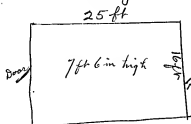 25 ft
Door
7 ft 6 in high
16 ft